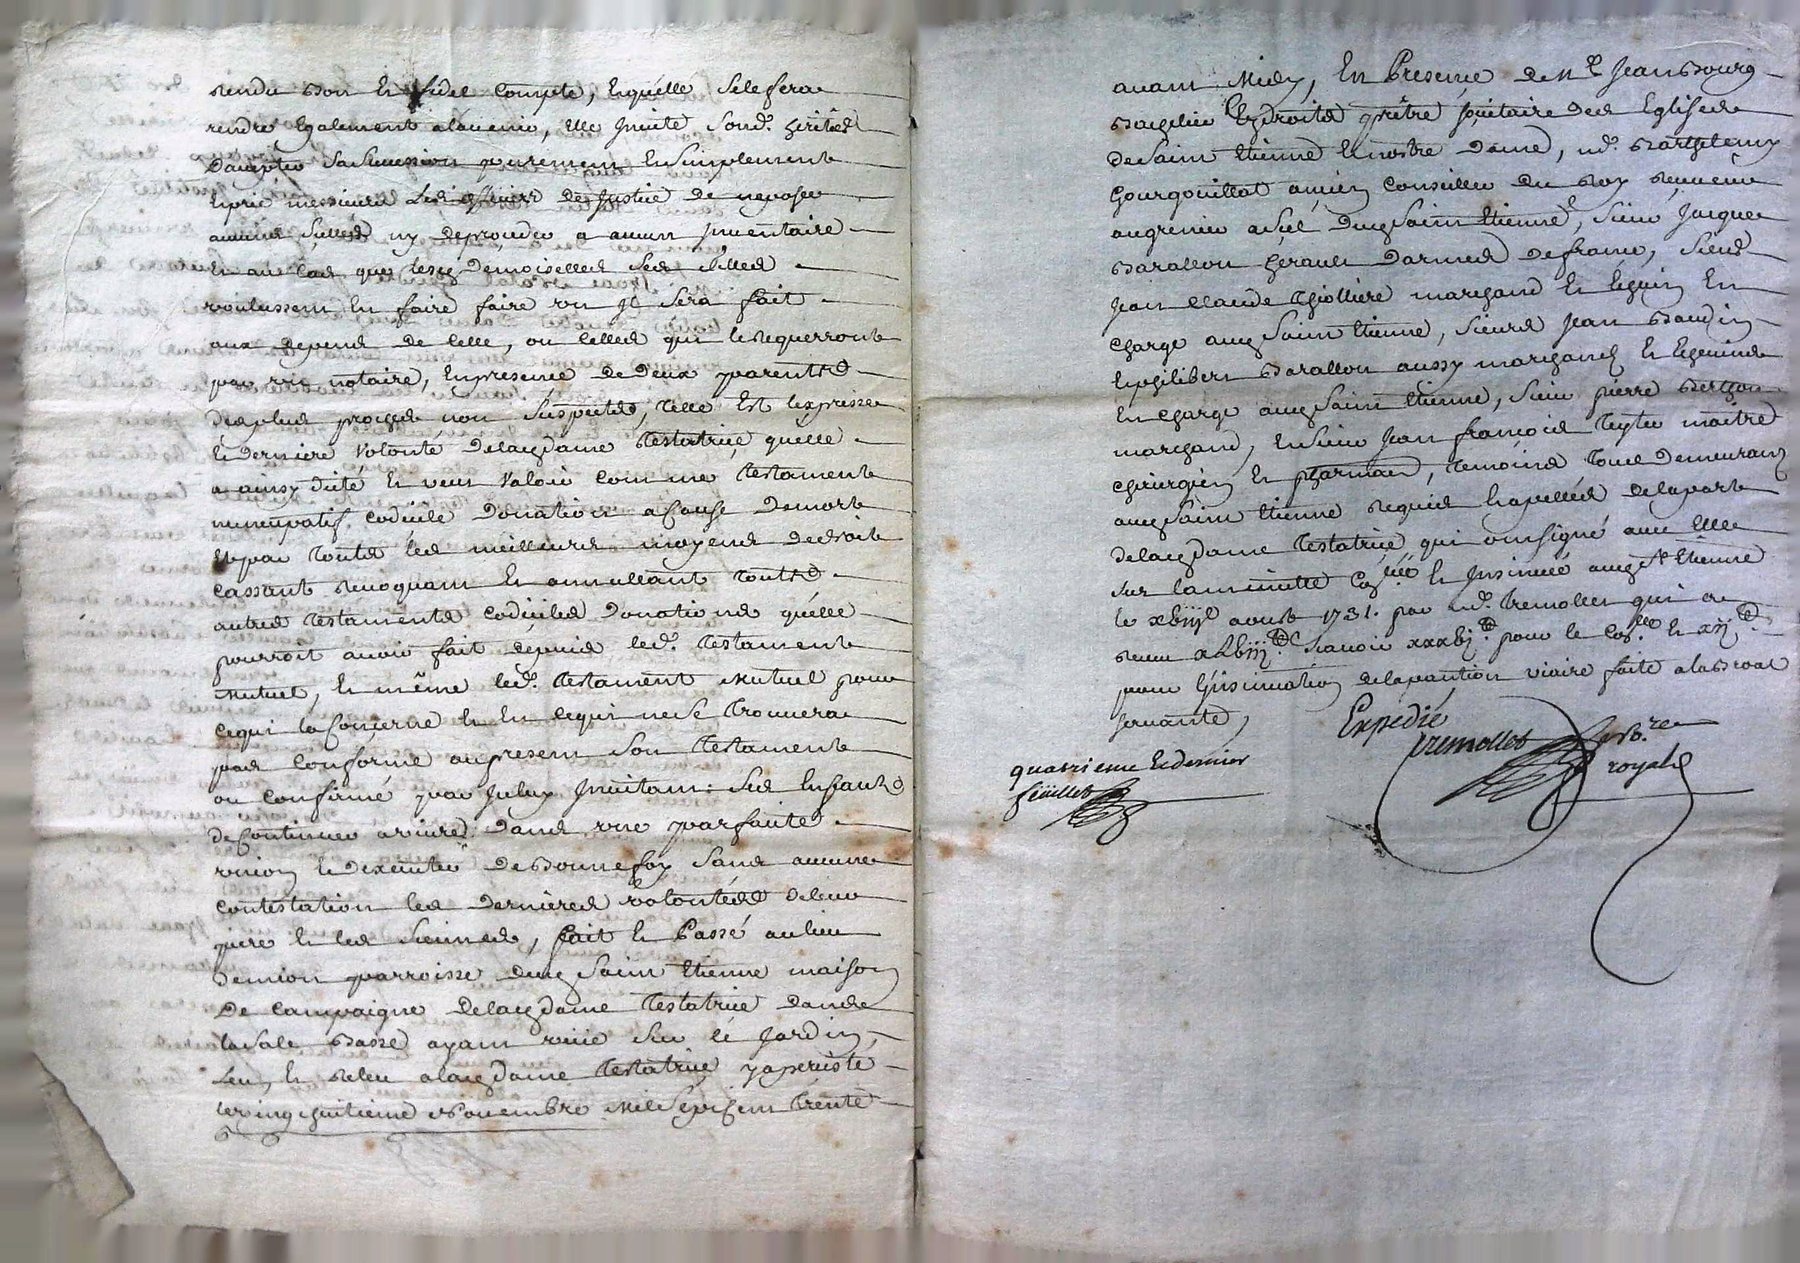 rendu bon et fidel compte, Et quelle se le fera
rendre Egalement alavenir, Elle Invite sond. heritier
daccepter sa succession purement Et simplement
Et prie messieurs Les officiers de Justice de napposer
aucuns scellés ny deproceder a aucun Inventaire
Et au Cas que lesd Demoiselles ses filles
voulussent En faire faire un Il sera fait
aux depens de Celle, ou Celles qui le requerront
par un notaire, En presence de Deux parents
des plus proches non suspects, Telle Est l'expresse
Et Derniere volonté De lad dame testatrice quelle
a ainsy dicté Et veut valoir comme testament
nuncupatif, codicile Donation a Cause De mort
Et par toutes les meilleurs moyens de droit
Cassant revoquant Et annullant touts
autres testaments codiciles Donations quelle
pourroit avoir fait depuis led. testament
Mutuel, Et même led. testament Mutuel pour
Cequi la Concerne Et En Cequi ne se trouvera
pas Conforme au present son testament
ou Confirmé par Iceluy Invitant ses Enfants
de Continuer a vivre Dans une parfaite
union Et dexecuter De bonne foy sans aucune
Contestation les Dernieres volontés de leur
pere Et les siennes, fait Et Passé au lieu
De mion parroisse dud Saint Etienne maison
De Campaigne delad dame testatrice dans
la sale basse ayant vüe sur le Jardin,
Leu, Et releu alad dame testatrice y a persisté
le vingt huitieme Novembre Mil sept cent trente
avant Midy, En Presence de Mre Jean Bourg
bachelier Es droits prêtre societaire des Eglises
de Saint Etienne Et nostre Dame, md. Barthelemy
Gourgouillat ancien Conseiller du Roy receveur
au grenier a sel dud Saint Etienne, sieur Jacques
Barallon herault Darmes de france, sieur
Jean Claude thiolliere marchand Et Echevin En
charge aud Saint Etienne, sieurs Jean Baudin
Et philibert Barallon aussy marchands Et Echevins
En charge aud Saint Etienne, sieur pierre Berthon
marchand, Et sieur Jean françois Teyter maître
chirurgien Et pharmacien, temoins tous demeurants
aud Saint Etienne requis Et apellés de la part
delad dame testatrice qui ont signé avec Elle
sur la minutte Coôllée Et Insinué aud St Etienne
le xbiije aoust 1731. par Md. tremollet qui a
receu xLbiij Scavoir xxxbj pour le Coôlle Et xij
pour l'insinuation de la pention viaire faite a la Broat
servante,
Expedié
tremollet
royal
quatrieme Et dernier
feüillet